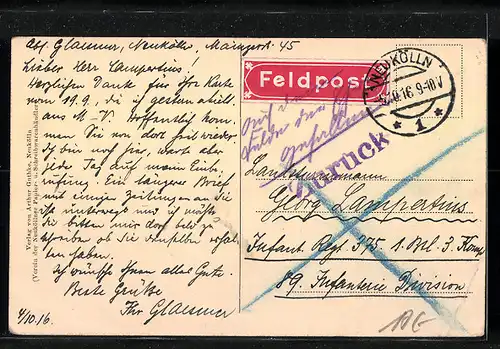 Abs. Glaesner, Neukölln, Mainzerst. 45
Lieber Herr Lampertius!
Herzlichen Dank für Ihre Karte
vom 19.9., die ich gestern erhielt.
aus M-V. Hoffentlich kom-
men Sie von dort frei wieder
Ich bin noch hier, warte aber
jeden Tag auf meine Einbe-
rufung. Ein langer Brief
mit einigen Zeitungen an Sie
ist unterwegs und ich möchte
Sie bitten mir dort bald zu
schreiben ob Sie denselben erhal-
ten haben.
Ich wünsche Ihnen alles Gute.
Beste Grüße
Ihr Glaesner
4/10.16.
Verlag von Arthur Guthke, Neukölln.
(Verein der Neuköllner Papier- u. Schreibwarenhändler)
Feldpost
NEUKÖLLN
10.16 9-10V
* 1 *
Auf dem
Felde der
Gefallen
Zurück
Landsturmmann
Georg Lampertius
Infant Regt 375 1. Btl. 3. Komp
89. Infanterie Division